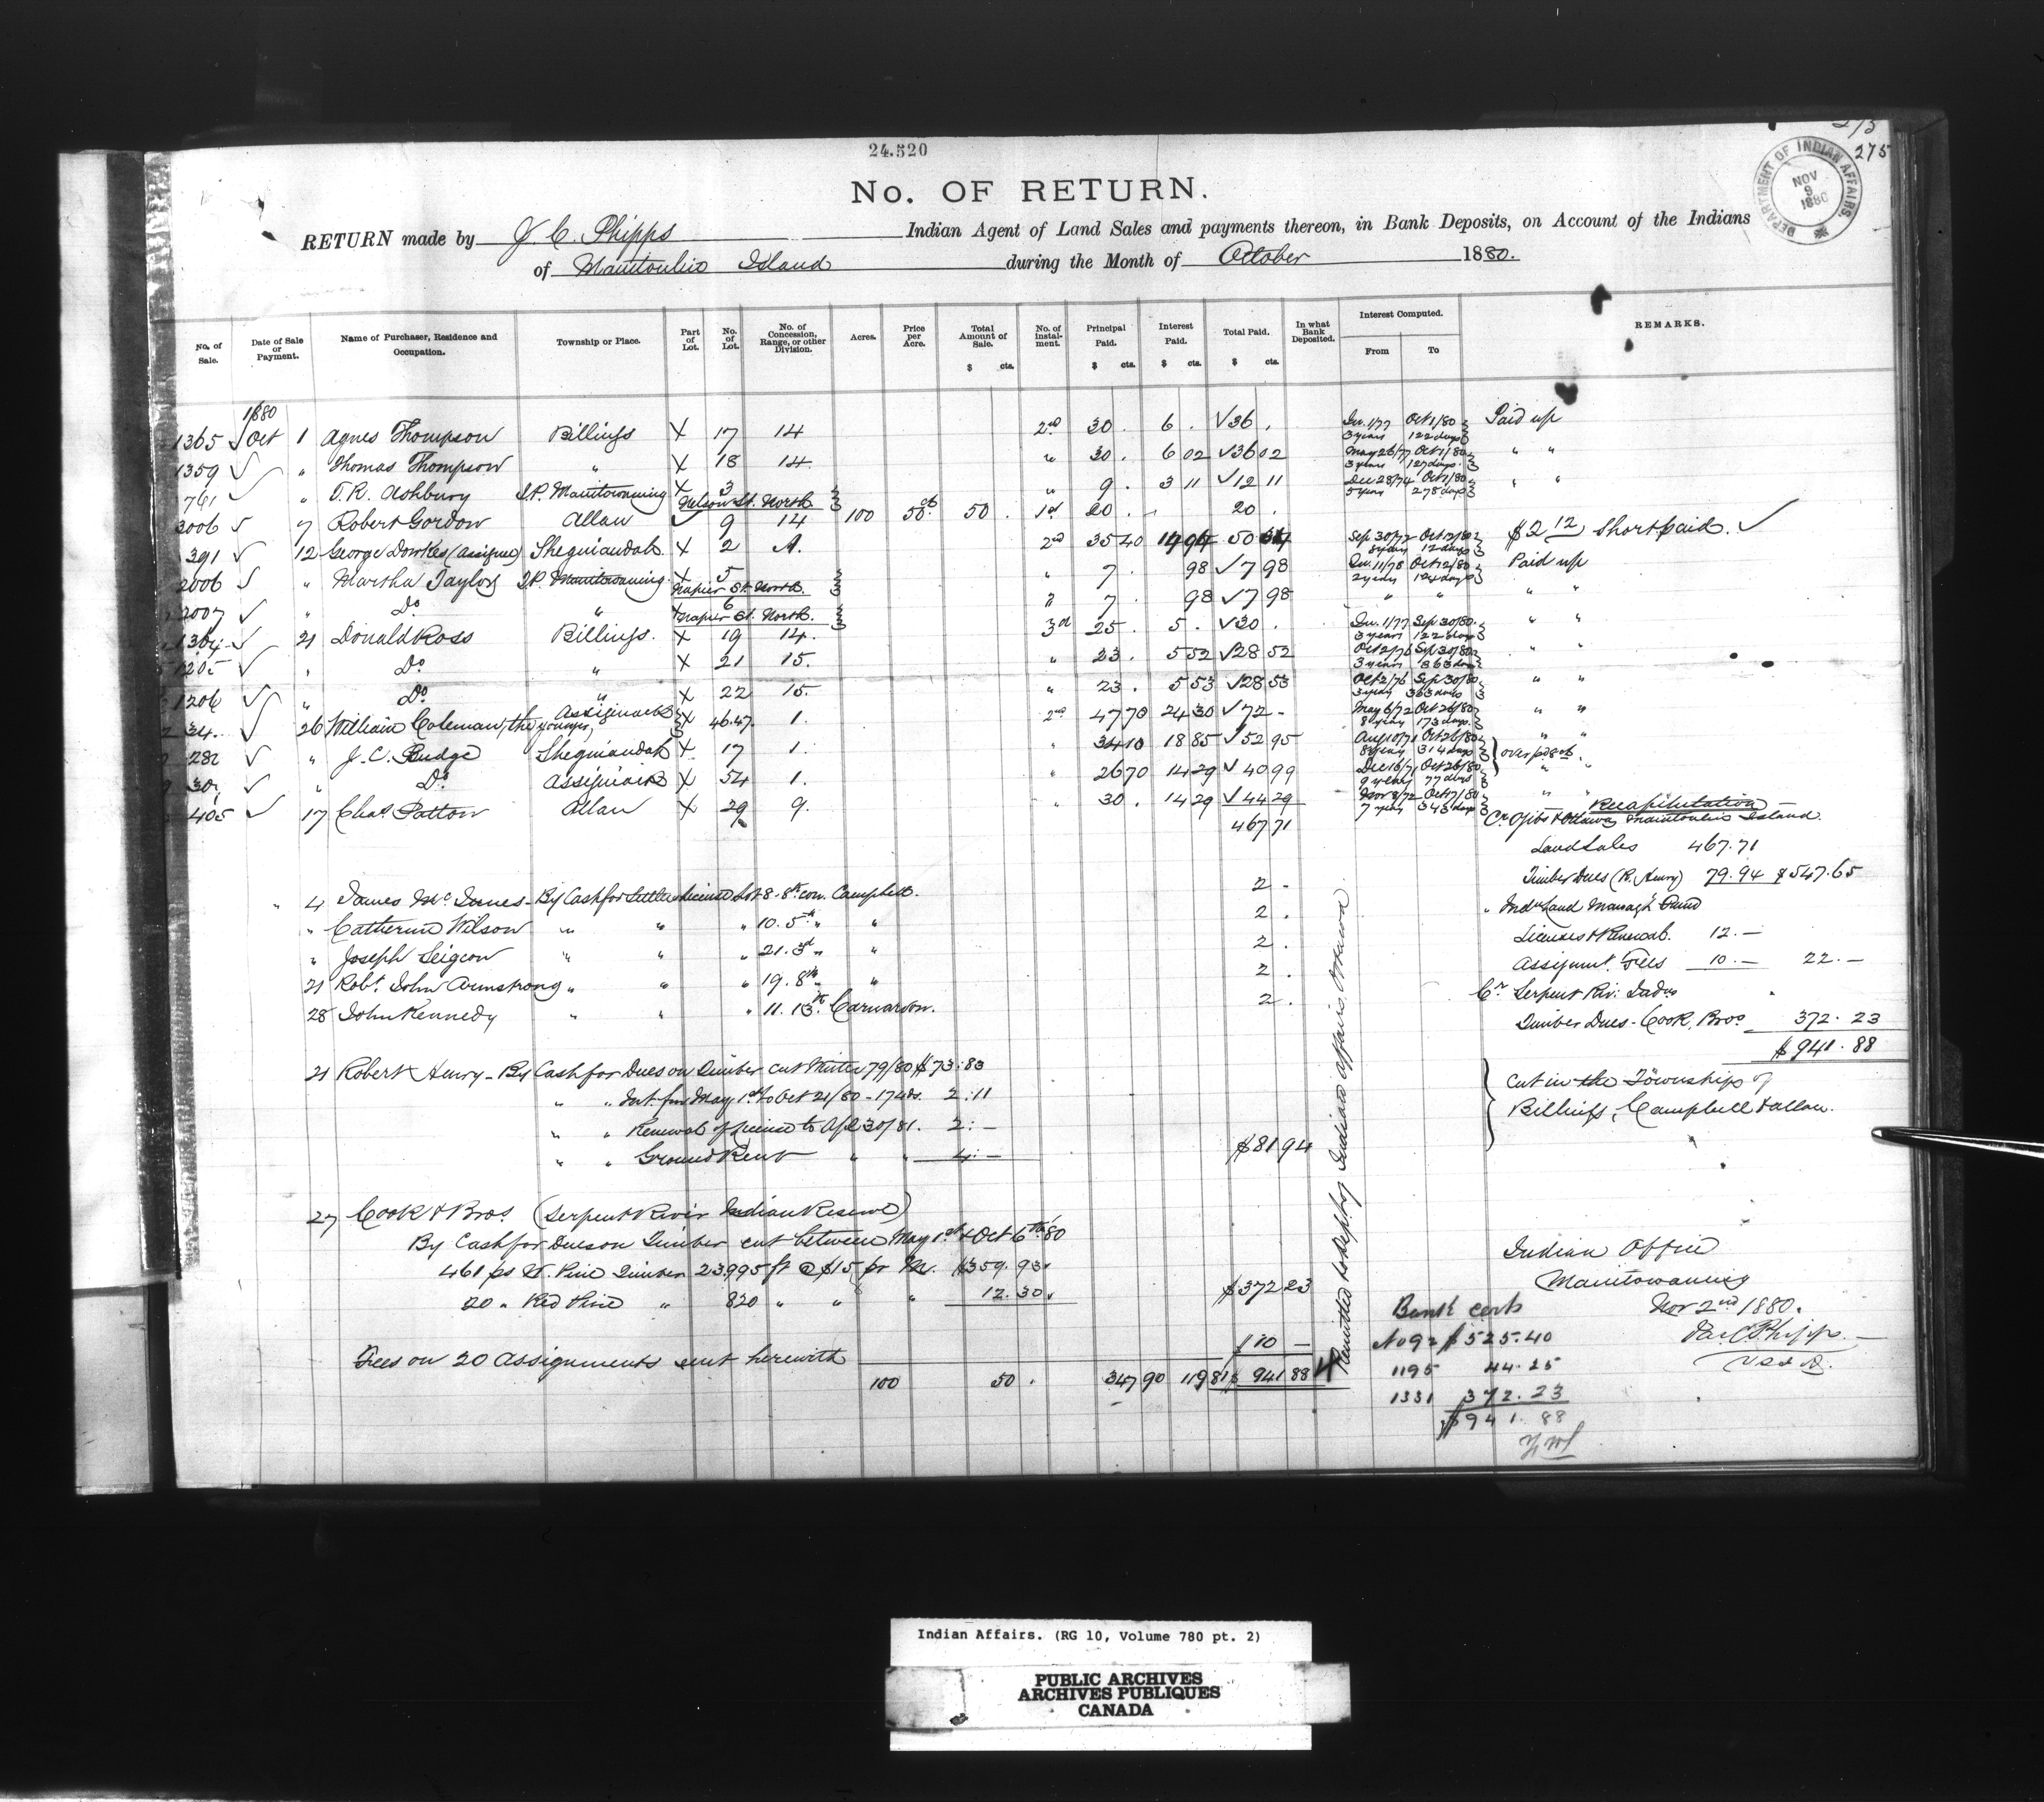 24.520
275
275
DEPARTMENT OF INDIAN AFFAIRS. NOV 9 1880
No. OF RETURN.
RETURN made by J. C. Phipps Indian Agent of Land Sales and payments thereon, in Bank Deposits, on Account of the Indians
of Manitoulin Island during the Month of October 1880.
No. of Sale. Date of Sale or Payment. Name of Purchaser, Residence and Occupation. Township or Place. Part of Lot. No. of Lot. No. of Concession, Range, or other Division. Acres. Price per Acre. Total Amount of Sale. $ cts. No. of Instalment. Principal Paid. $ cts. Interest Paid. $ cts. Total Paid. $ cts. In what Bank Deposited. Interest Computed. From To REMARKS.
1880
1365 √ Oct 1 Agnes Thompson Billings X 17 14 2nd 30 . 6 . √ 36 . Jun. 1/77 Oct 1/80 Paid up
3 years 122 days
1359 √ " Thomas Thompson " X 18 14 " 30 . 6 02 √ 36 02 May 26/77 Oct 1/80 " "
3 years 127 days
741 √ " T. R. Ashbury T.P. Manitowaning X 3 Nelson St. North " 9 . 3 11 √ 12 11 Dec 28/74 Oct 1/80 " "
5 years 278 days
2006 √ 7 Robert Gordon Allan √ 9 14 100 50 ct 50 . 1st 20 . 20 .
391 √ 12 George Dowkes (Assignee) Sheguiandah X 2 A. 2nd 35 40 14 94 50 34 Sep 30/72 Oct 12/80 $2 12 Short paid. √
8 years 12 days
2006 √ " Martha Taylor T.P. Manitowaning X 5 Napier St. North " 7 . 98 √ 7 98 Jun. 11/78 Oct 12/80 Paid up
2 years 124 days
2007 √ " Do " X 6 Napier St. North " 7 . 98 √ 7 98 " " " "
1364 √ 21 Donald Ross Billings. X 19 14. 3rd 25 . 5 . √ 30 . Jun. 1/77 Sep 30/80. " "
3 years 122 days
1205 √ " Do " X 21 15. " 23 . 5 52 √ 28 52 Oct 2/76 Sep 30/80 " "
3 years 363 days
1206 √ " Do " X 22 15. " 23 . 5 53 √ 28 53 Oct 2/76 Sep 30/80 " "
3 years 363 days
34. √ 26 William Coleman, the younger, Assiginack X 46.47 1. 2nd 47 70 24 30 √ 72 - May 6/72 Oct 26/80 " "
8 years 173 days.
282 √ " J. C. Budge Sheguiandah X 17 1. " 34 10 18 85 √ 52 95 Aug 10/71 Oct 26/80 " "
314 days over pd 8 cts.
30 √ " Do. Assiginack X 54 1. " 26 70 14 29 √ 40 99 Dec 16/71 Oct 26/80 " "
77 days
405 √ 17 Chas Patton Allan X 29 9. " 30 . 14 29 √ 44 29 Nov 8/72 Oct 17/80 " "
7 years 343 days
467 71
Recapitulation
Cr. Ojibs & Ottawas Manitoulin Island.
Land Sales 467.71
Timber Dues (R. Henry) 79.94 $547.65
" Indn Land Managt Fund
Licenses & Renewals. 12. —
Assignmt. Fees 10. — 22. —
Cr Serpent Riv: Inds
Timber Dues - Cook, Bros. 372.23
$941.88
" 4 James McInnes - By Cash for Settlers License Lot 8 - 8th con. Campbell. 2 -
" Catherine Wilson " " " 10. 5th " " 2 .
" Joseph Seigeon " " " 21. 3d " " 2 .
21 Robt. John Armstrong " " " 19. 8th " " 2 .
28 John Kennedy " " " 11. 13th Carnarvon. 2 .
21 Robert Henry - By Cash for Dues on Timber cut Winter 79/80 $73:83
" " Int. from May 1st to Oct 21/80 - 174 ds. 2:11
" " Renewal of License to Apl 30/81. 2: —
" " Ground Rent " " 4: —
$81 94
Cut in the Townships of
Billings, Campbell & Allan.
27 Cook & Bros. (Serpent River Indian Reserve)
By Cash for Dues on Timber cut between May 1st & Oct 6th 80
461 ps W. Pine Timber 23,995 ft @ $15 pr M. $359.93.
20 " Red Pine " 820 " " " 12.30.
$372 23
Fees on 20 Assignments sent herewith $10 —
100 50 . 347 90 119 81 $941 88
Remitted to Dept. of Indian Affairs, Ottawa
Indian Office
Manitowaning
Nov 2nd 1880.
Jas. C. Phipps
Bank certs
No 92 $525.40
1195 44.25
1331 372.23
$941.88
Indian Affairs. (RG 10, Volume 780 pt. 2)
PUBLIC ARCHIVES
ARCHIVES PUBLIQUES
CANADA